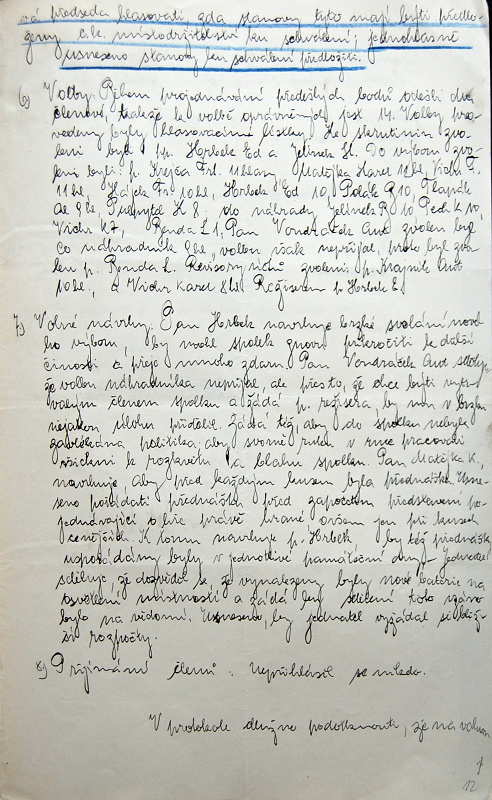 ná předseda hlasovati, zda stanovy tyto mají býti předlo-
ženy c.k. místodržitelství ku schválení; jednohlasně
usneseno stanovy ku schválení předložiti.
6) Volby. Během projednávání předešlých bodů odešli dva
členové, takže k volbě oprávněných jest 14. Volby pro-
vedeny byly hlasovacími lístky. Ke skrutiniu zvo-
leni byli pp. Hrbek Ed a Jelínek St. Do výboru zvo-
leni byli: p. Krejča Frt. 11 hlasy Matějka Karel 11 hl., Vichr F.
11 hl., Hájek Frt 10 hl., Hrbek Ed 10, Polák R 10,
9 hl., K 8, do náhrady Jelínek B 10, Pech K 10,
Vichr K 7, Renda L 1, Pan Vondráček Ant zvolen byl
co náhradník 8 hl., volbu však nepřijal, proto byl zvo-
len p. Renda L. Revisory účtů zvoleni: p. Krajník Ant
10 hl., a Vichr Karel 8 hl. Režisérem p. Hrbek E.
7) Volné návrhy. Pan Hrbek navrhuje brzké svolání nové-
ho výboru, by mohl spolek znovu přikročiti ku další
činnosti a přeje mnoho zdaru. Pan Vondráček Ant sděluje,
že volbu náhradníka nepřijal, ale přesto, že chce býti vytr-
valým členem spolku a žádá p. režiséra, by mu v brzku
nějakou úlohu přidělil. Žádá též, aby do spolku nebyla
zavlékána politika, aby svorně ruku v ruce pracovali
všichni k rozkvětu a blahu spolku. Pan Matějka K.,
navrhuje, aby před každým kusem byla přednáška. Usne-
seno pořádati přednášku před započetím představení po-
jednávající o hře právě hrané ovšem jen při kusech
cenějších. K tomu navrhuje p. Hrbek, by též přednášky
uspořádány byly v jednotlivé památeční dny. Jednatel
sděluje, že dozvěděl se, že vynalezeny byly nové baterie na
osvětlení místností a žádá by sdělení toto vzato
bylo na vědomí. Usneseno, by jednatel vyžádal si bliž-
ší rozpočty.
8) Přijímání členů. Nepřihlásil se nikdo.
V protokole dlužno podotknouti, že na valnou
12